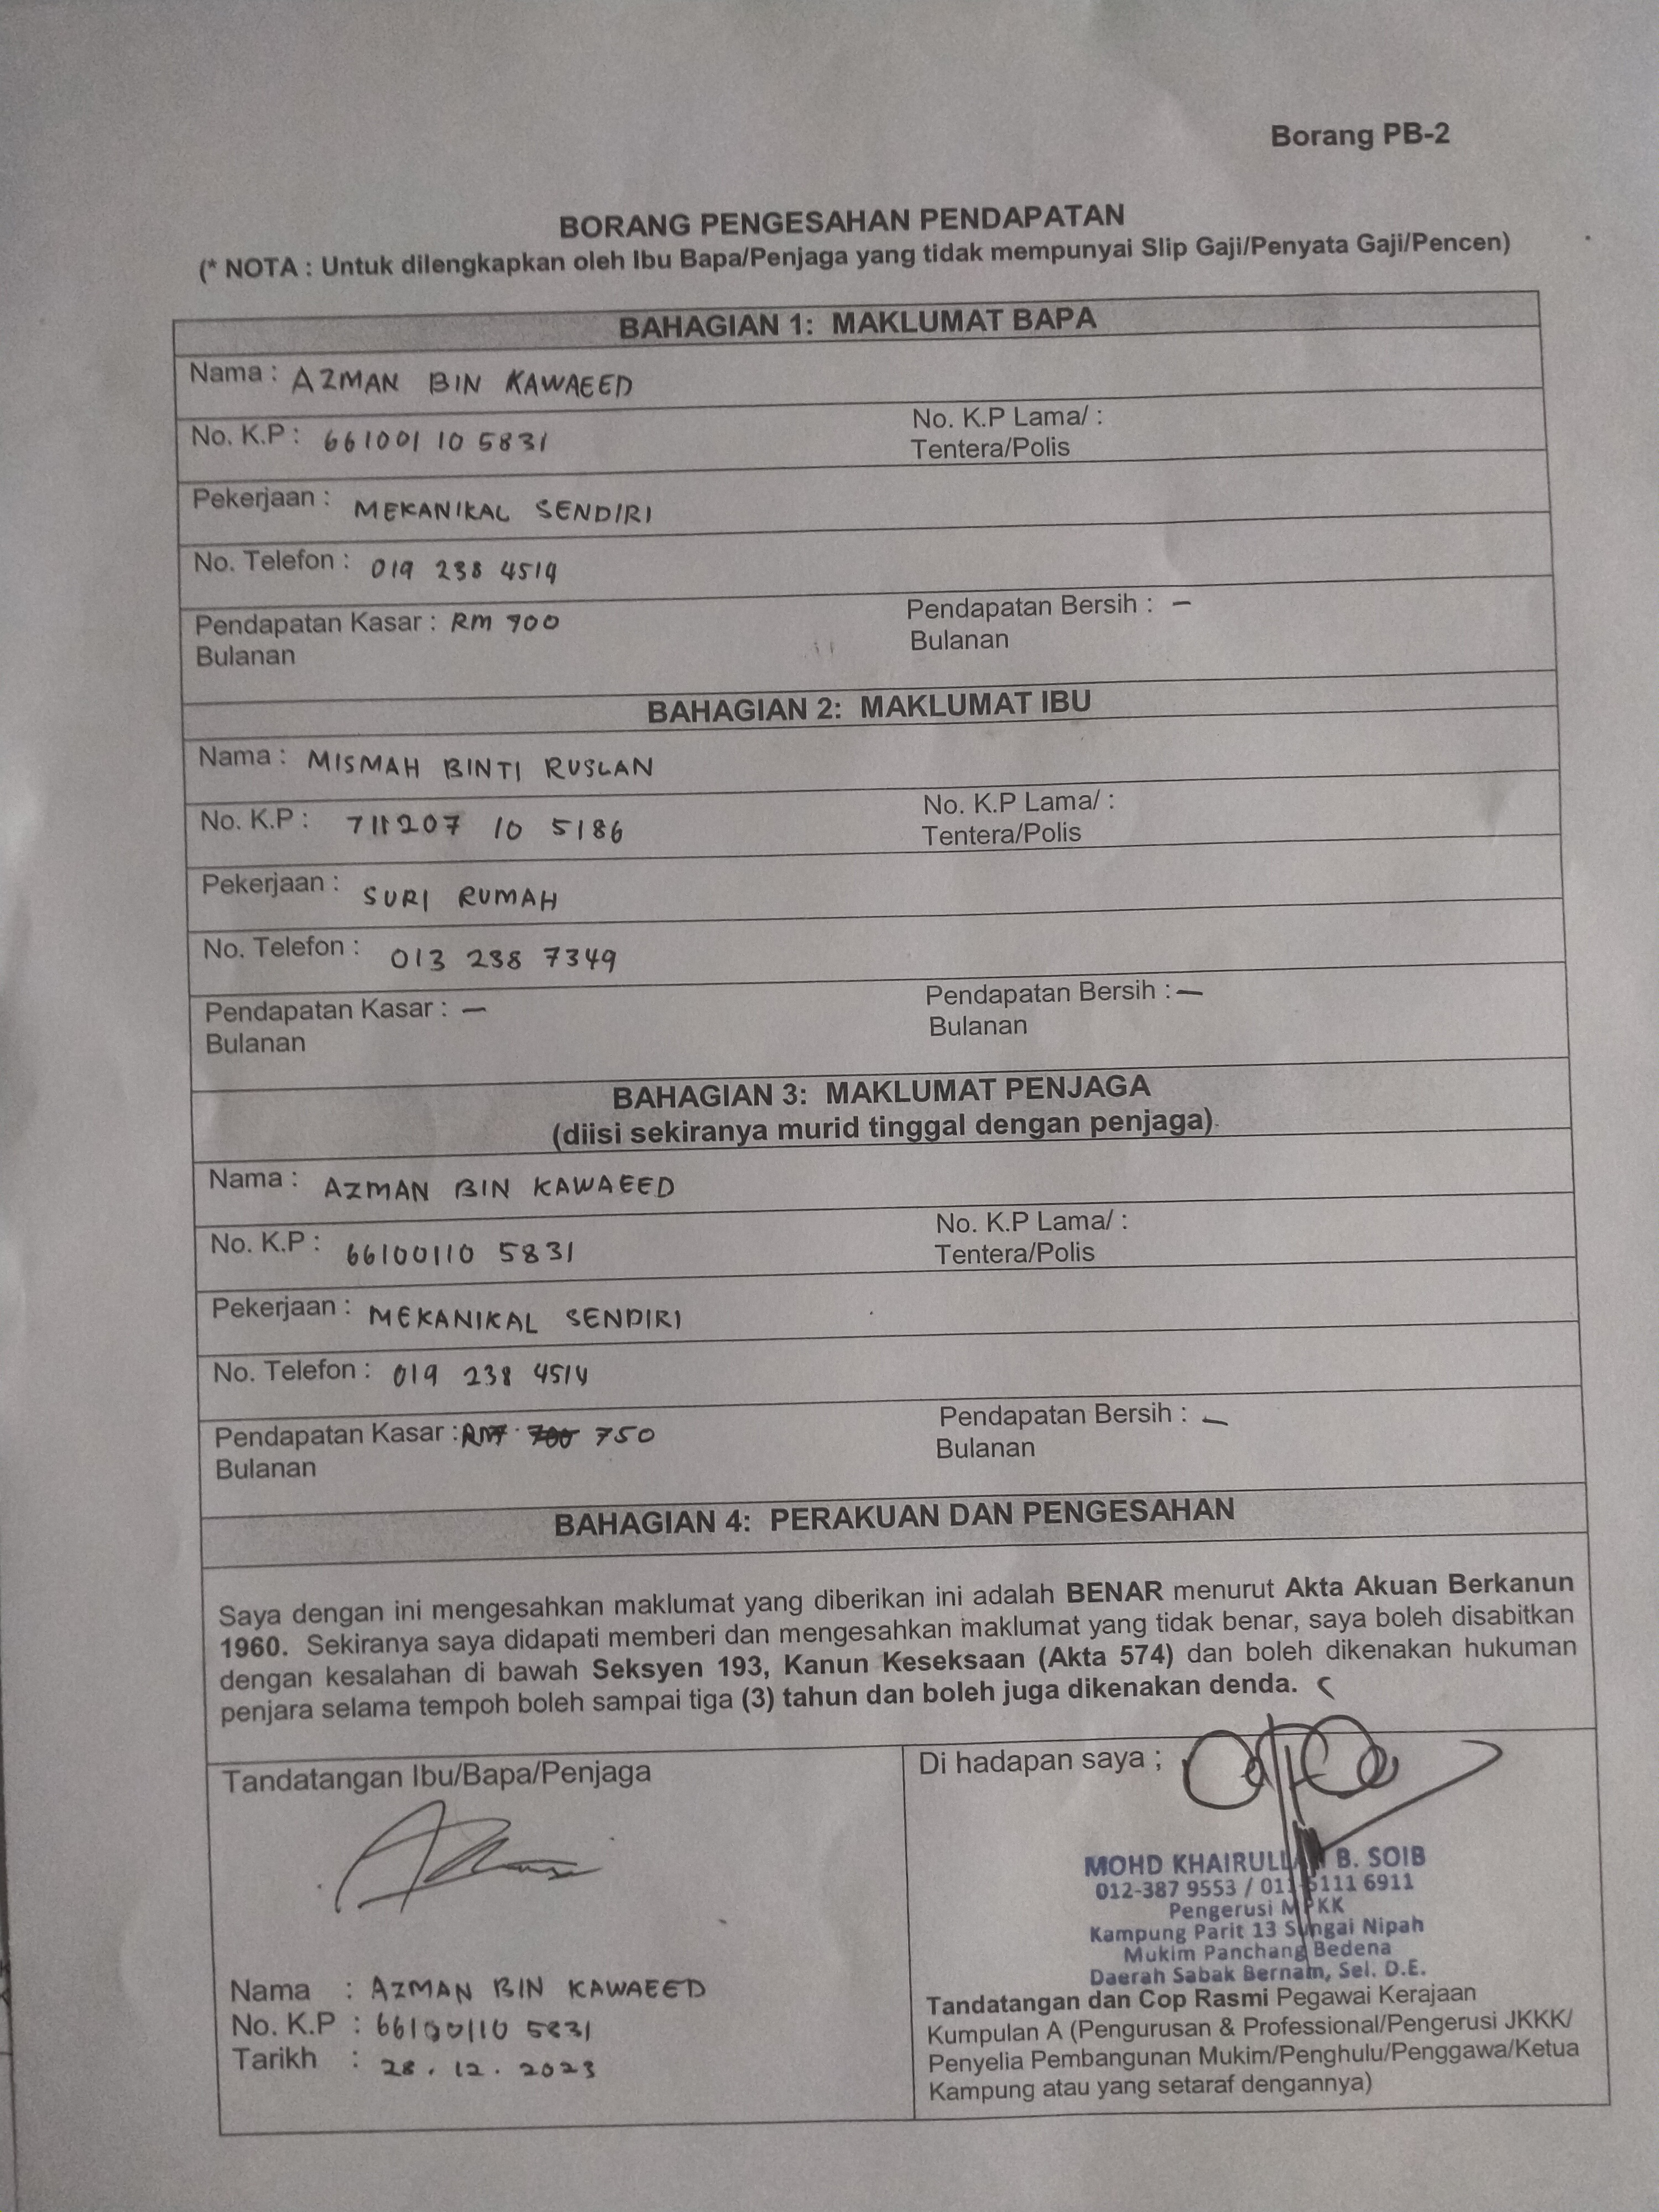 Borang PB-2
BORANG PENGESAHAN PENDAPATAN
(* NOTA : Untuk dilengkapkan oleh Ibu Bapa/Penjaga yang tidak mempunyai Slip Gaji/Penyata Gaji/Pencen)
BAHAGIAN 1: MAKLUMAT BAPA
Nama : AZMAN BIN KAWAEED
No. K.P : 661001 10 5831 No. K.P Lama/ :
Tentera/Polis
Pekerjaan : MEKANIKAL SENDIRI
No. Telefon : 019 238 4514
Pendapatan Kasar : RM 700 Pendapatan Bersih : –
Bulanan Bulanan
BAHAGIAN 2: MAKLUMAT IBU
Nama : MISMAH BINTI RUSLAN
No. K.P : 711207 10 5186 No. K.P Lama/ :
Tentera/Polis
Pekerjaan : SURI RUMAH
No. Telefon : 013 238 7349
Pendapatan Kasar : – Pendapatan Bersih : –
Bulanan Bulanan
BAHAGIAN 3: MAKLUMAT PENJAGA
(diisi sekiranya murid tinggal dengan penjaga)
Nama : AZMAN BIN KAWAEED
No. K.P : 66100110 5831 No. K.P Lama/ :
Tentera/Polis
Pekerjaan : MEKANIKAL SENDIRI
No. Telefon : 019 238 4514
Pendapatan Kasar : RM 700 750 Pendapatan Bersih : –
Bulanan Bulanan
BAHAGIAN 4: PERAKUAN DAN PENGESAHAN
Saya dengan ini mengesahkan maklumat yang diberikan ini adalah BENAR menurut Akta Akuan Berkanun
1960. Sekiranya saya didapati memberi dan mengesahkan maklumat yang tidak benar, saya boleh disabitkan
dengan kesalahan di bawah Seksyen 193, Kanun Keseksaan (Akta 574) dan boleh dikenakan hukuman
penjara selama tempoh boleh sampai tiga (3) tahun dan boleh juga dikenakan denda.
Tandatangan Ibu/Bapa/Penjaga
Nama : AZMAN BIN KAWAEED
No. K.P : 66100110 5831
Tarikh : 28.12.2023
Di hadapan saya ;
MOHD KHAIRULLAH B. SOIB
012-387 9553 / 011-5111 6911
Pengerusi MPKK
Kampung Parit 13 Sungai Nipah
Mukim Panchang Bedena
Daerah Sabak Bernam, Sel. D.E.
Tandatangan dan Cop Rasmi Pegawai Kerajaan
Kumpulan A (Pengurusan & Professional/Pengerusi JKKK/
Penyelia Pembangunan Mukim/Penghulu/Penggawa/Ketua
Kampung atau yang setaraf dengannya)